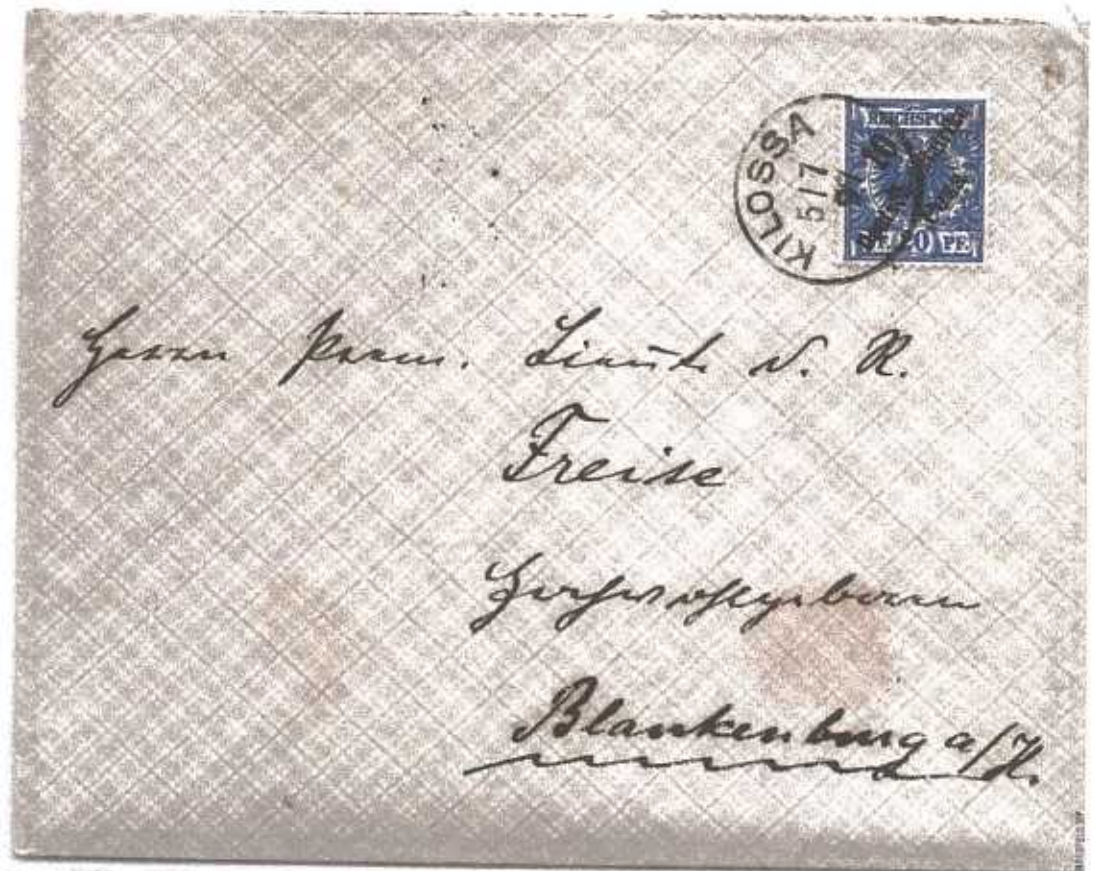 KILOSSA
5/7
REICHSPOST
PF. 20 PF
Herrn Prem. Lieut. d. R.
Freise
Hochwohlgeboren
Blankenburg a/H.